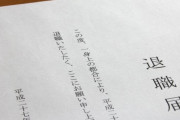 退職届
この度、一身上の都合により、平成二十
退職いたしたく、ここにお願い申し上
平成二十七年